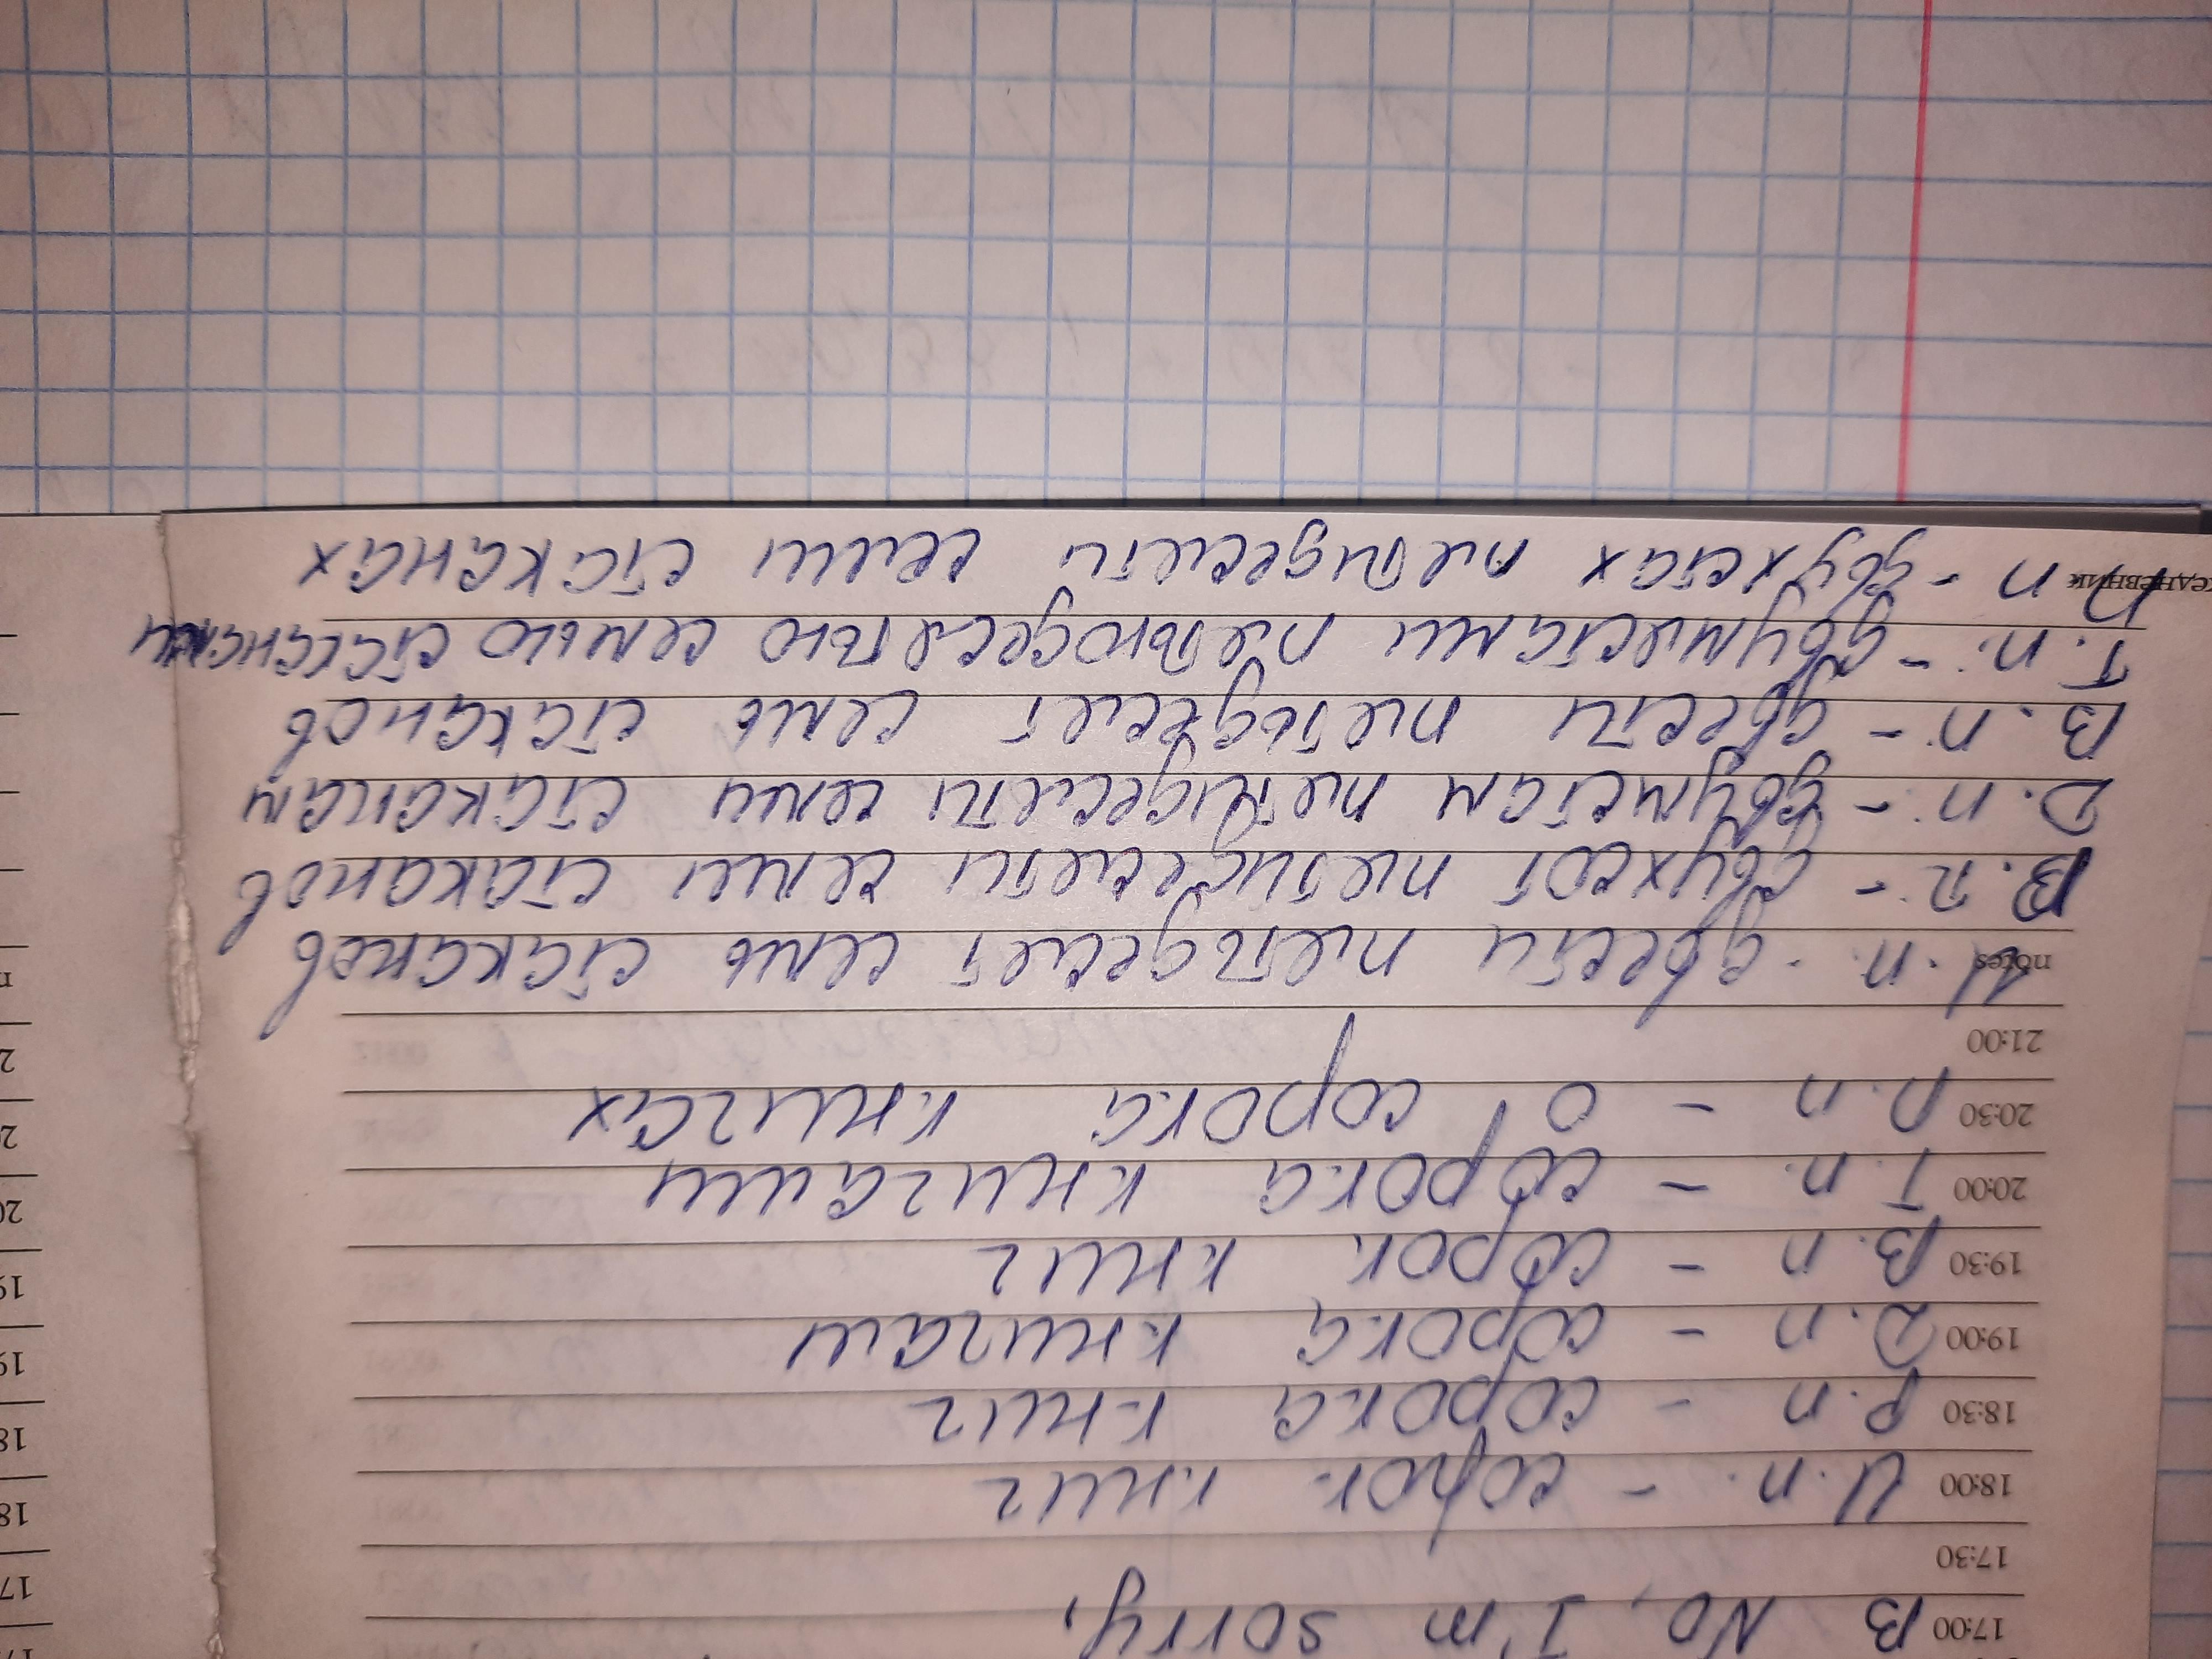 17:00 B No, I'm sorry,
17:30
18:00 И.п. - сорок книг
18:30 Р.п - сорока книг
19:00 Д.п - сорока книгам
19:30 В.п - сорок книг
20:00 Т.п. - сорока книгами
20:30 П.п - о сорока книгах
21:00
notes И.п. - двести пятьдесят семь стаканов
В.п - двухсот пятидесяти семи стаканов
Д.п. - двумстам пятидесяти семи стаканам
В.п. - двести пятьдесят семь стаканов
Т.п. - двумястами пятьюдесятью семью стаканами
П п - двухстах пятидесяти семи стаканах